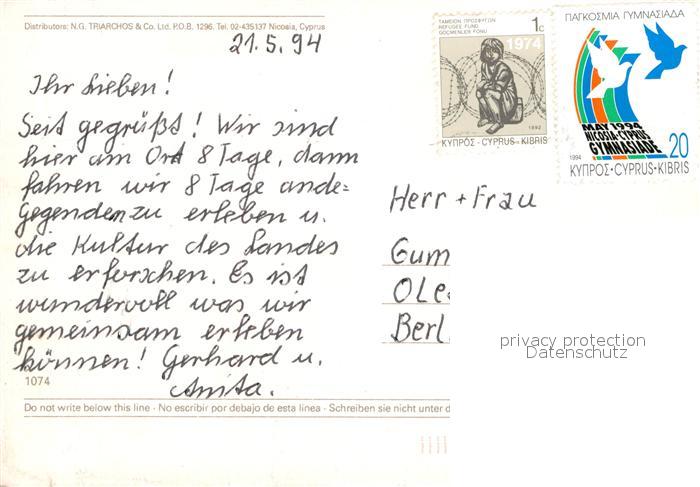 Distributors: N.G. TRIARCHOS & Co. Ltd. P.O.B. 1296. Tel. 02-435137 Nicosia, Cyprus
21.5.94
Ihr Lieben!
Seit gegrüßt! Wir sind
hier am Ort 8 Tage, dann
fahren wir 8 Tage ande=
Gegenden zu erleben u.
die Kultur des Landes
zu erforschen. Es ist
wundervoll was wir
gemeinsam erleben
können! Gerhard u.
Anita.
1074
Do not write below this line - No escribir por debajo de esta linea - Schreiben sie nicht unter d
ΤΑΜΕΙΟΝ ΠΡΟΣΦΥΓΩΝ
REFUGEE FUND
GÖÇMENLER FONU
1c
1974
1992
ΚΥΠΡΟΣ·CYPRUS·KIBRIS
ΠΑΓΚΟΣΜΙΑ ΓΥΜΝΑΣΙΑΔΑ
MAY 1994
NICOSIA-CYPRUS
GYMNASIADE
20
1994
ΚΥΠΡΟΣ·CYPRUS·KIBRIS
Herr + Frau
Gum
Ole
Berl
privacy protection
Datenschutz